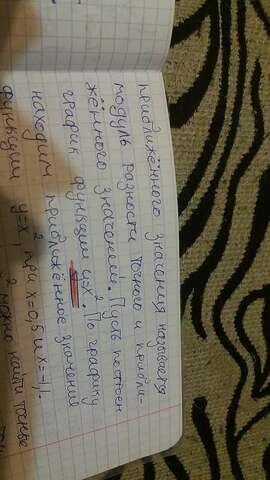 приближённого значения называется
модуль разности точного и прибли-
жённого значением. Пусть построен
график функции y=x². По графику
находим приближённое значение
функции y=x², при x=0,5 и x=-1,1.
можно найти точные